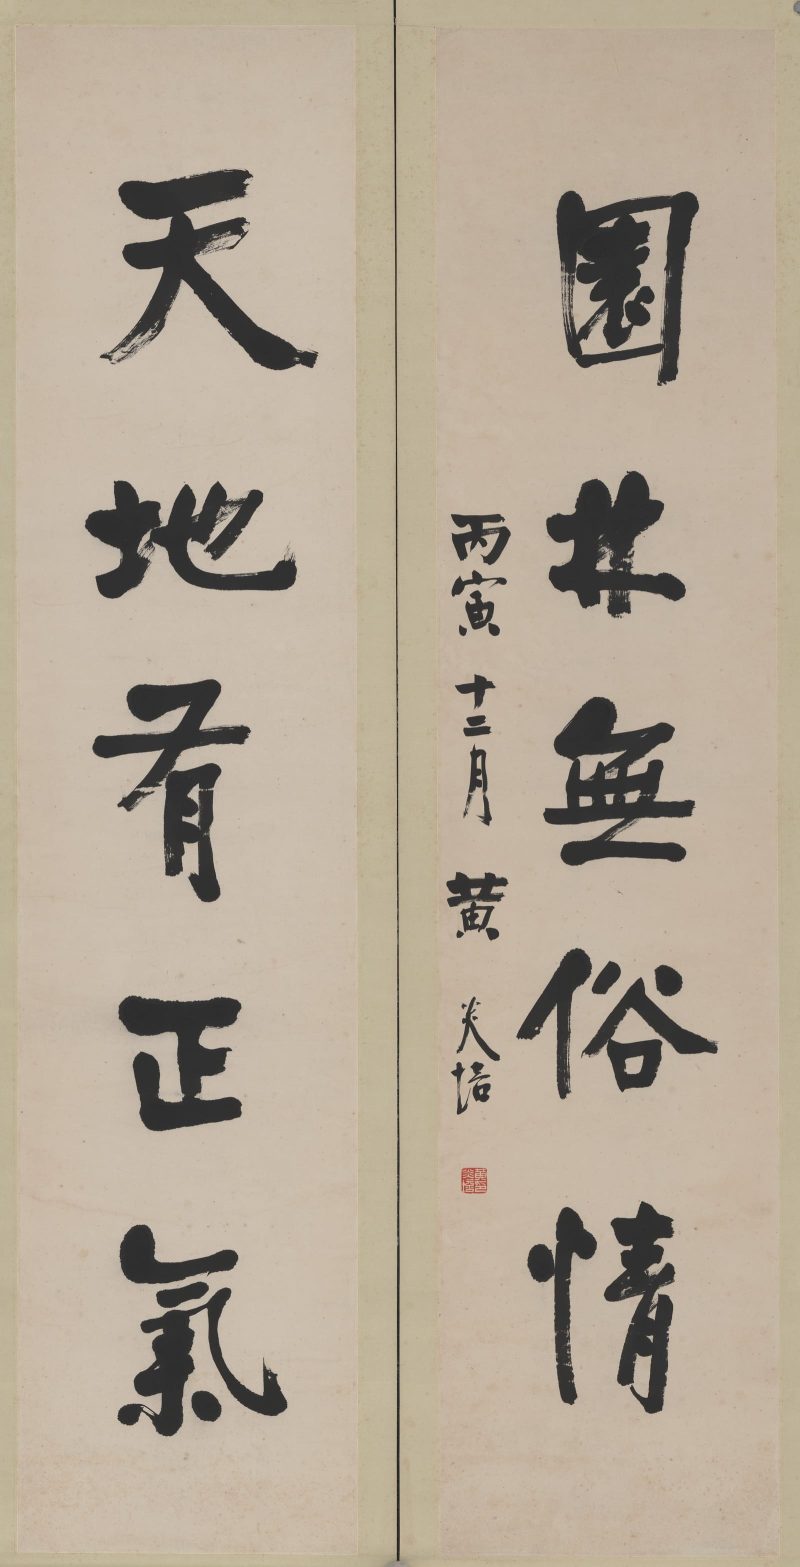 園林無俗情
丙寅十二月黄炎培
天地有正氣